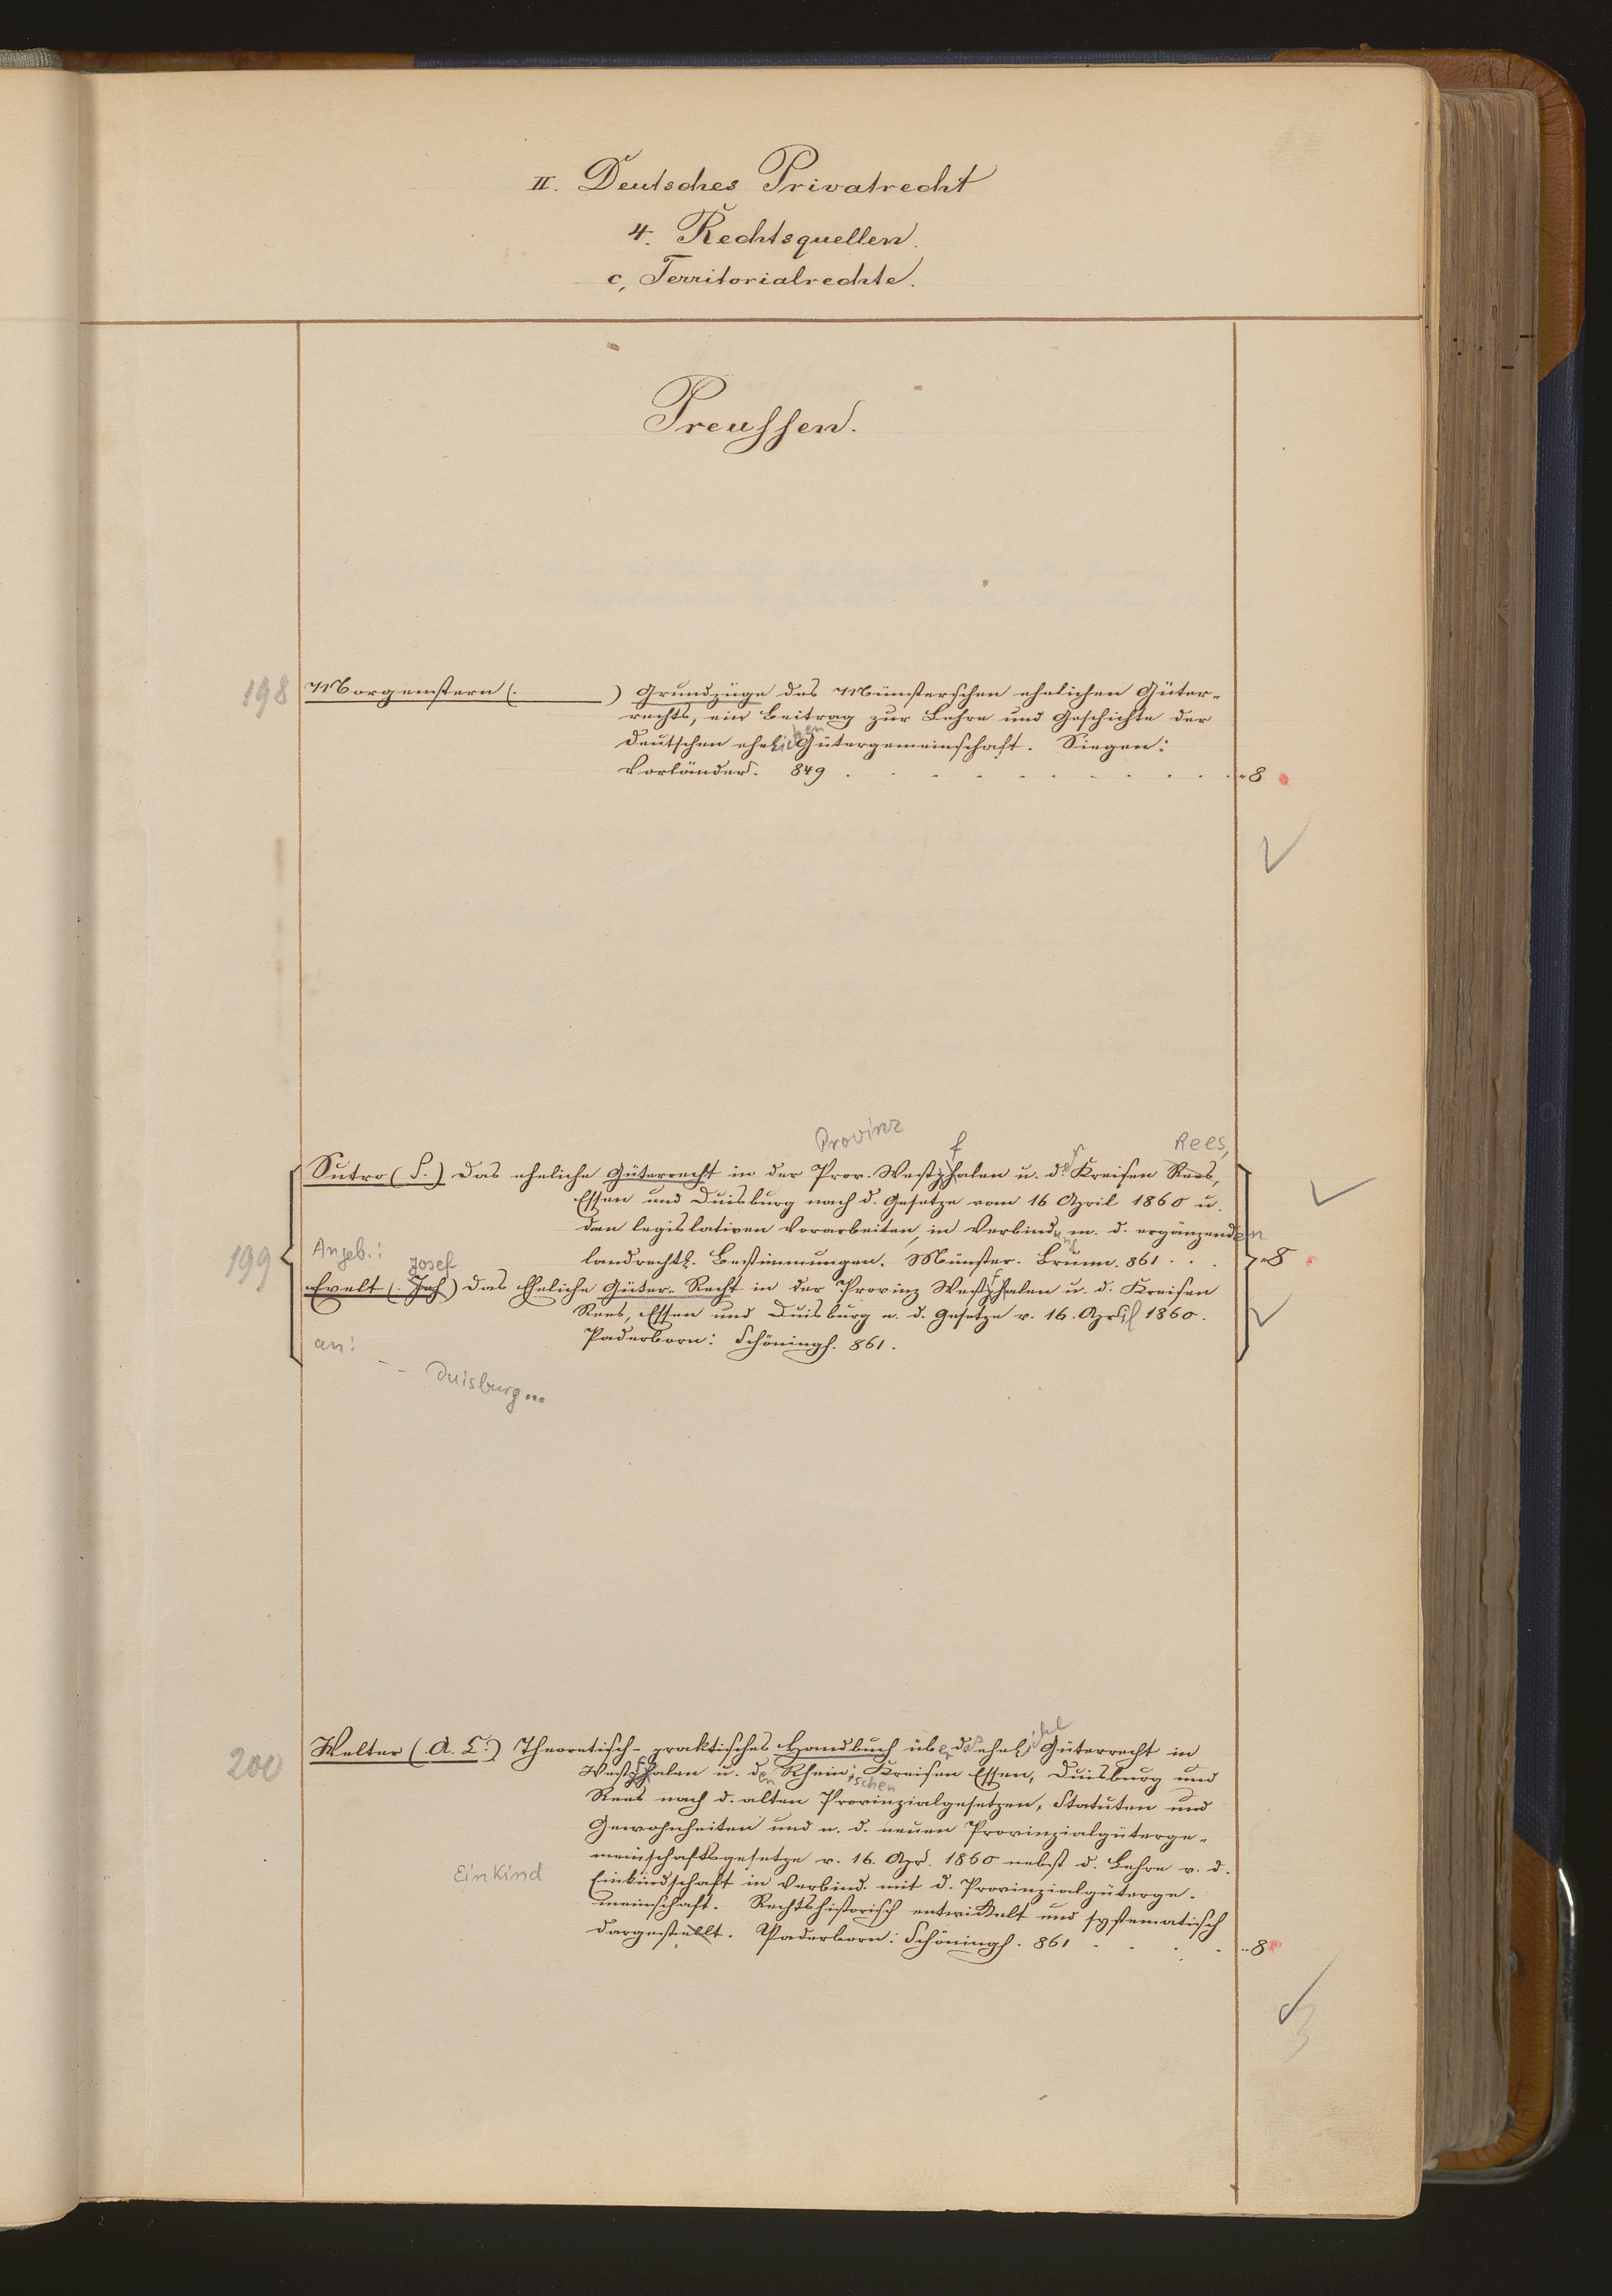 II. Deutsches Privatrecht
4. Rechtsquellen.
c, Territorialrechte.
Preussen.
198 Morgenstern (. ) Grundzüge des Münsterschen ehelichen Güter-
rechts, ein Beitrag zur Lehre und Geschichte der
deutschen ehelichen Gütergemeinschaft. Siegen:
Vorländer. 849 . . . . . . . . . . „ 8
Provinz f r Rees,
Sutro (S.) Das eheliche Güterrecht in der Prov. Westphalen u. d. Kreisen Rees,
Essen und Duisburg nach d. Gesetze vom 16 April 1860 u.
den legislativen Vorarbeiten, in Verbindung m. d. ergänzenden
199 Angeb.: landrechtl. Bestimmungen. Münster. Brunn. 861 . . . „ 8
Josef
Evelt (. Jos) Das Eheliche Güter-Recht in der Provinz Westphalen u. d. Kreisen
Rees, Essen und Duisburg n. d. Gesetze v. 16. April 1860.
an: Paderborn: Schöningh. 861.
-- Duisburg...
200 Welter (. A. C.) Theoretisch-praktisches Handbuch über das ehel. Güterrecht in
Westphalen u. den Rheinischen Kreisen Essen, Duisburg und
Rees nach d. alten Provinzialgesetzen, Statuten und
Gewohnheiten und n. d. neuen Provinzialgüterge-
meinschaftsgesetze v. 16. Apr. 1860 nebst d. Lehre v. d.
Einkind Einkindschaft in Verbind. mit d. Provinzialgüterge-
meinschaft. Rechtshistorisch entwickelt und systematisch
dargestellt. Paderborn: Schöningh. 861 . . . . „ 8